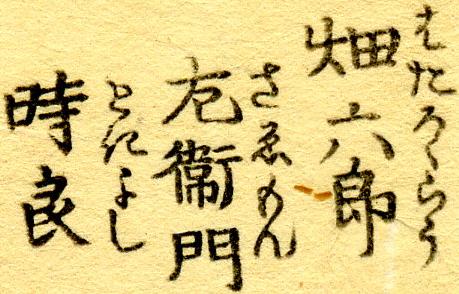 畑六郎
はたろくらう
左衛門
さゑもん
時良
ときよし